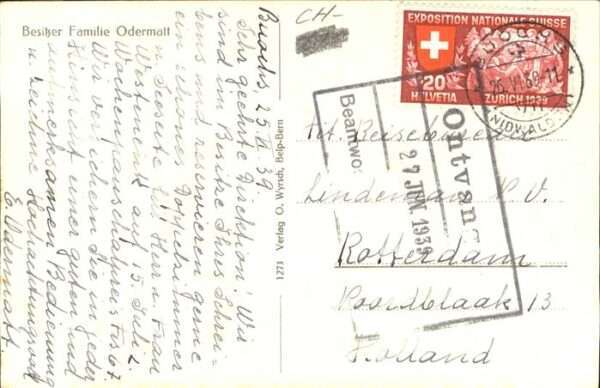 Besitzer Familie Odermatt
CH-
Buochs, 25.VI.39
Sehr geehrte Direktion! Wir
sind im Besitze Ihres Schrei-
bens und reservieren gerne
ein schönes Doppelzimmer
n. Seeseite für Herrn & Frau
Westenenk auf 15. Juli z.
Wochenpauschalpreis Fr. 67.
Wir versichern Sie in jeder
Hinsicht einer guten und
aufmerksamen Bedienung
u. zeichne Hochachtungsvoll
E. Odermatt.
1271 Verlag O. Wyrsch, Belp-Bern
EXPOSITION NATIONALE SUISSE
20
HELVETIA ZURICH 1939
BUOCHS
25.VI.39.11
(NIDWALD)
Ontvang
27 JUN 1939
Beantwo
Tit. Reisebureau
Lindeman N.V.
Rotterdam
Noordblaak 13
Holland